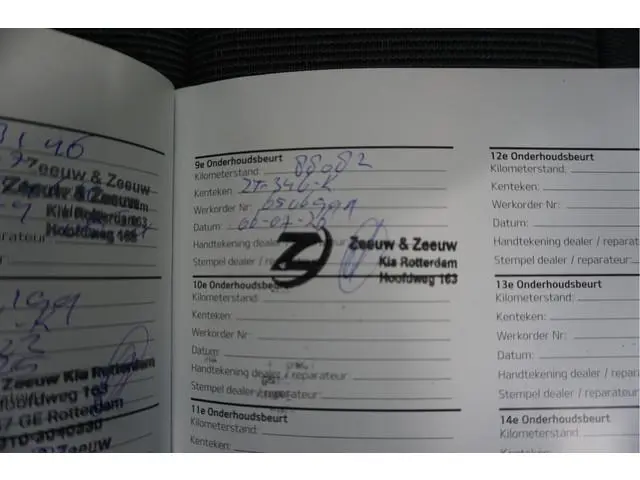 Zeeuw & Zeeuw
Kia Rotterdam
Hoofdweg 163
Zeeuw Kia Rotterdam
Hoofdweg 163
GE Rotterdam
Zeeuw
9e Onderhoudsbeurt
Kilometerstand: 88082
Kenteken:
Werkorder Nr:
Datum:
Handtekening dealer / reparateur
Stempel dealer / reparateur:
Z
Zeeuw & Zeeuw
Kia Rotterdam
Hoofdweg 163
10e Onderhoudsbeurt
Kilometerstand:
Kenteken:
Werkorder Nr:
Datum:
Handtekening dealer / reparateur:
Stempel dealer / reparateur:
11e Onderhoudsbeurt
Kilometerstand:
Kenteken:
12e Onderhoudsbeurt
Kilometerstand:
Kenteken:
Werkorder Nr:
Datum:
Handtekening dealer / reparat
Stempel dealer / reparateur:
13e Onderhoudsbeurt
Kilometerstand:
Kenteken:
Werkorder Nr:
Datum:
Handtekening dealer / reparat
Stempel dealer / reparateur:
14e Onderhoudsbeurt
Kilometerstand: